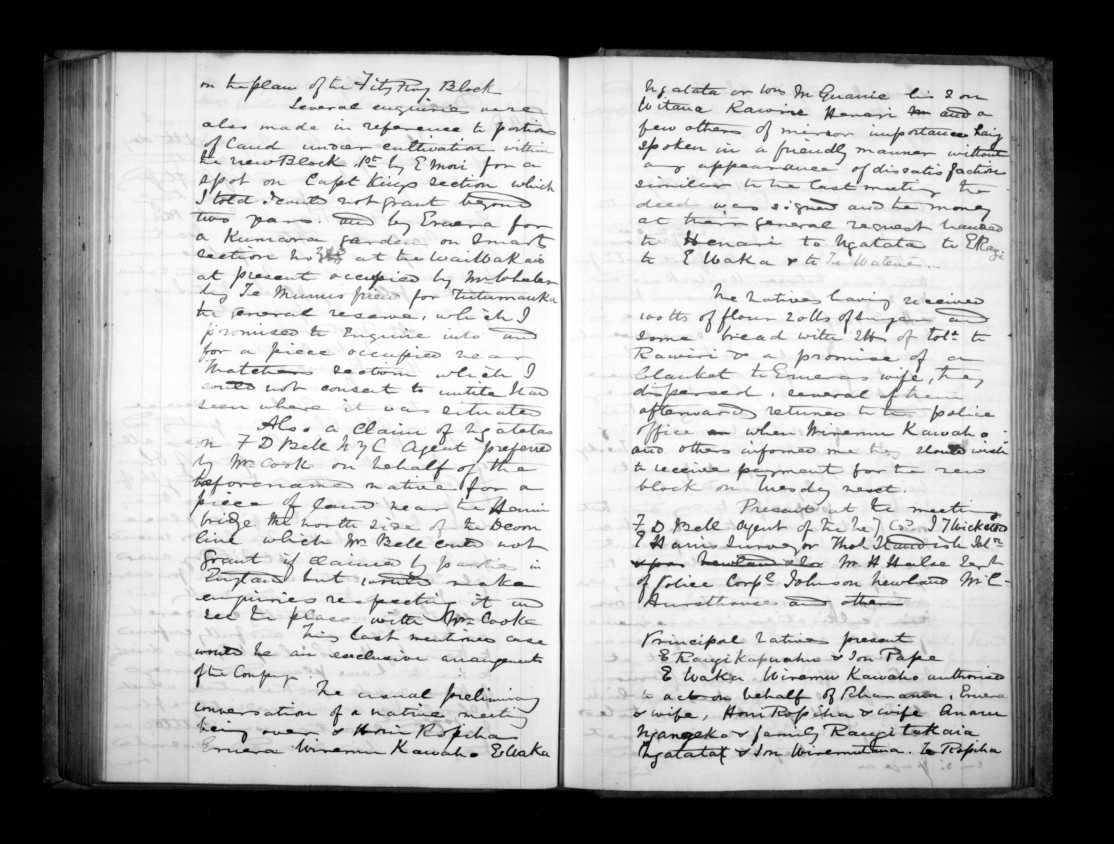 on the plan of the Fitz Roy Block
Several enquiries were
also made in reference to portions
of land under cultivation within
the new Block 1st by E Mori for a
spot on Capt Kings section which
I told I could not grant beyond
two years. and by Emera for
a Kumara garden on Smart
section No at the Waiwakaio
at present occupied by Mr Wheeler
by Te for Tutumauka
the general reserve, which I
promised to enquire into and
for a piece occupied near
Thatchers section which I
could not consent to until I had
seen where it was situated
Also a claim of Ngatatas
on F D Bell N Z C Agent preferred
by Mr Cook on behalf of the
beforenamed native for a
piece of land near the Henui
bridge the north side of the Devon
line which Mr Bell could not
grant if claimed by parties in
England but would make
enquiries respecting it and
see the place with Mr Cooke
This last mentioned case
would be an exclusive arrangement
of the Company. The usual preliminary
conversation of a native meeting
being over & Honi Ropiha
Emera Wiremu Kawaho E Waka
Ngatata or his 2 on
Witana Rawiri Henari and a
few others of minor importance having
spoken in a friendly manner without
any appearance of dissatisfaction
similar to the last meeting the
deed was signed and the money
at their general request handed
to Henari to Ngatata to E Rangi
to E Waka & to Te Watena.
The natives having received
100 lbs of flour 20 lbs of sugar and
some bread with of tobo to
Rawiri & a promise of a
blanket to Emeras wife, they
dispersed, several of them
afterwards returned to the police
office when Wiremu Kawaho
and others informed me they should wish
to receive payment for the new
block on Tuesday next.
Present at the meeting
F D Bell Agent of the N Z Co.
E Harris Surveyor Thos Standish
M H Halse Sergt
of Police Corpl Johnson Newland Mr C
Hursthouse and others
Principal natives present
E Rangi & Ion Pape
E Waka Wiremu Kawaho authorised
to act on behalf of Emera
& wife, Honi Ropiha & wife Anaru
& family Rangitakaia
Ngatata & Ion Te Ropiha